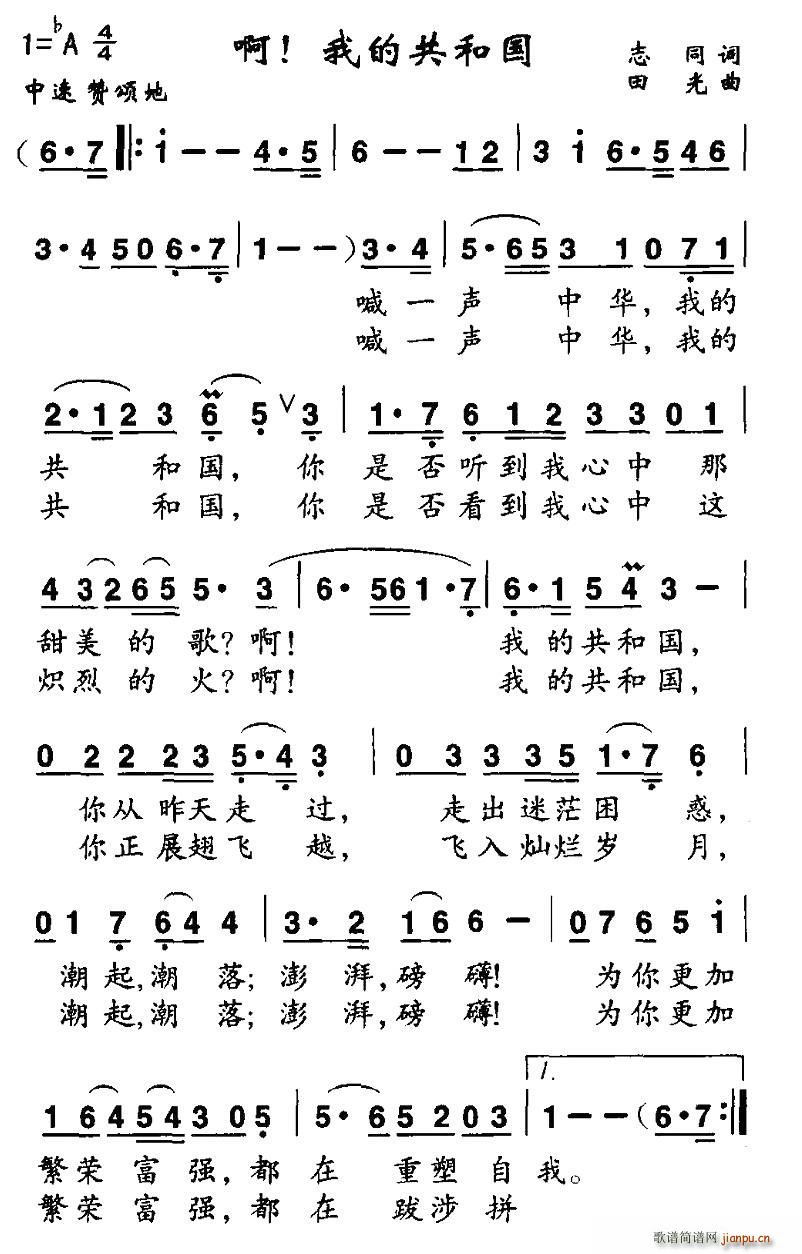 1=♭A 4/4 啊！我的共和国 志同词
中速 赞颂地 田光曲
(6·7 ‖: i - - 4·5 | 6 - - 12 | 3 i 6·546 |
3·4 50 6·7 | 1 - - ) 3·4 | 5·65 3 1 0 71 |
喊一声 中华，我的
喊一声 中华，我的
2·12 3 6 5 ∨ 3 | 1·7 6 12 3 3 01 |
共 和国，你是否听到我心中那
共 和国，你是否看到我心中这
4 32 65 5· 3 | 6· 56 1·7 | 6·1 5 4 3 - |
甜美的歌？啊！ 我的共和国，
炽烈的火？啊！ 我的共和国，
0 2 2 23 5·4 3 | 0 3 3 35 1·7 6 |
你从昨天走过，走出迷茫困惑，
你正展翅飞越，飞入灿烂岁月，
01 7 64 4 | 3·2 16 6 - | 07 65 i |
潮起，潮落；澎湃，磅礴！ 为你更加
潮起，潮落；澎湃，磅礴！ 为你更加
1 64 54 3 05 | 5·6 52 03 | 1. 1 - - (6·7 :‖
繁荣富强，都在重塑自我。
繁荣富强，都在跋涉拼
歌谱简谱网 jianpu.cn